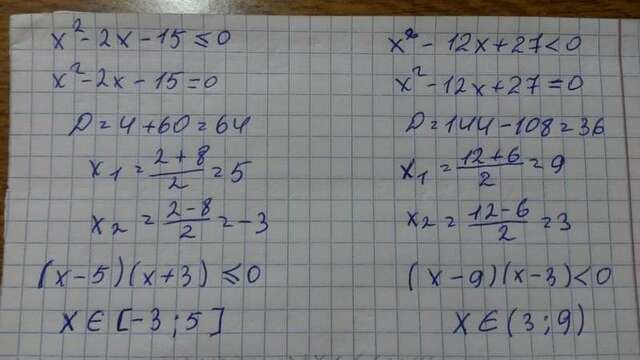 x² - 2x - 15 ≤ 0
x² - 2x - 15 = 0
D = 4 + 60 = 64
x₁ = (2 + 8)/2 = 5
x₂ = (2 - 8)/2 = -3
(x - 5)(x + 3) ≤ 0
x ∈ [-3; 5]
x² - 12x + 27 < 0
x² - 12x + 27 = 0
D = 144 - 108 = 36
x₁ = (12 + 6)/2 = 9
x₂ = (12 - 6)/2 = 3
(x - 9)(x - 3) < 0
x ∈ (3; 9)